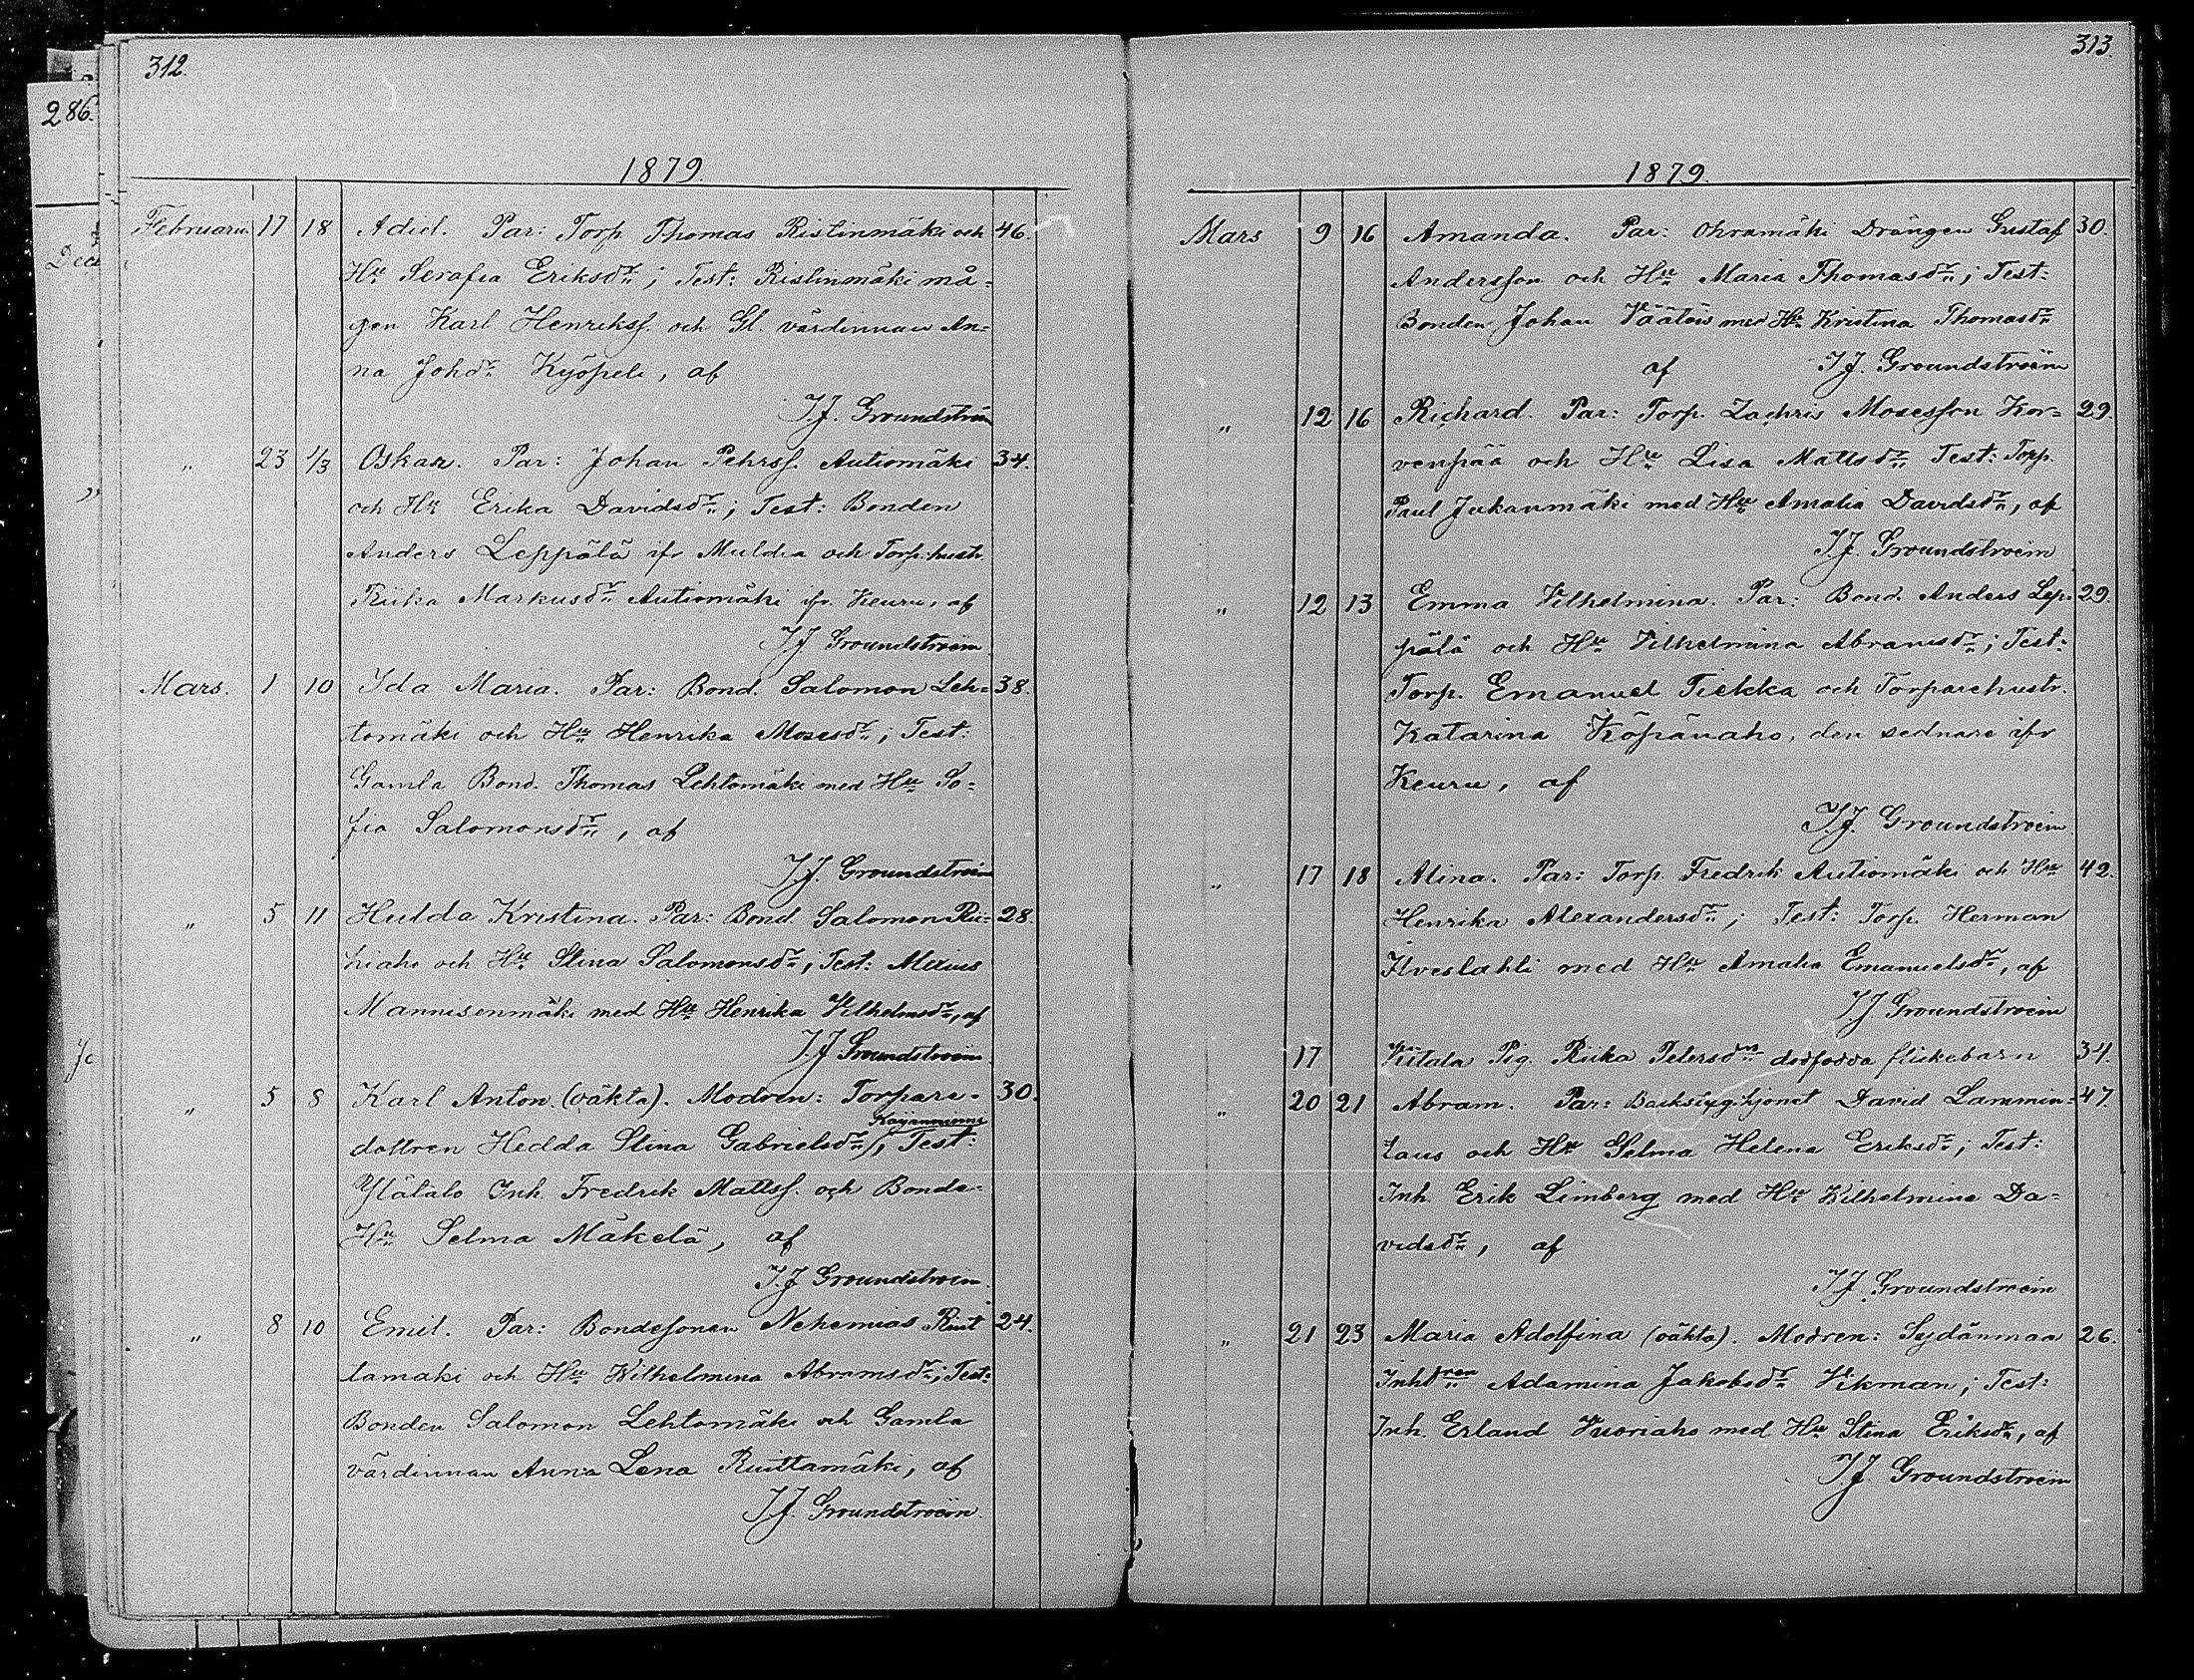 312.
286.
Dece
1879.
Februarii 17 18 Adiel. Par: Torp. Thomas Ristinmäki och 46.
Hu Serafia Eriksdr; Test: Ristinmäki må-
gen Karl Henrikss. och Gl. värdinnan An-
na Johdr Kyöpeli, af
I.J. Groundström
" 23 1/3 Oskar. Par: Johan Pehrss. Autiomäki 34.
och Hu Erika Davidsdr; Test: Bonden
Anders Leppälä ifr Muldia och Torp:hustr.
Riika Markusdr Autiomäki ifr. Keuru, af
I.J Groundstroëm
Mars. 1 10 Ida Maria. Par: Bond. Salomon Leh- 38.
tomäki och Hu Henrika Mosesdr; Test:
Gamla Bond. Thomas Lehtomäki med Hu So-
fia Salomonsdr, af
I.J. Groundstroëm
" 5 11 Hulda Kristina. Par: Bond. Salomon Rii- 28.
hiaho och Hu Stina Salomonsdr; Test: Alexius
Mannisenmäki med Hu Henrika Vilhelmsdr, af
I.J Groundstroëm
" 5 8 Karl Anton. (oäkta). Modren: Torpare- 30.
Käyänniemi
dottren Hedda Stina Gabrielsdr, Test:
Ylätalo Inh. Fredrik Mattss. och Bonde-
Hu Selma Mäkelä, af
I.J Groundstroem
" 8 10 Emil. Par: Bondesonen Nehemias Ruit 24.
tamäki och Hu Wilhelmina Abramsdr; Test:
Bonden Salomon Lehtomäki och Gamla
värdinnan Anna Lena Ruittamäki, af
I.J. Groundstroëm.
313.
1879.
Mars 9 16 Amanda. Par: Ohramäki Drängen Gustaf 30.
Andersson och Hu Maria Thomasdr; Test:
Bonden Johan Väätäis med Hu Kristina Thomasdr
af I.J. Groundstroëm
" 12 16 Richard. Par: Torp. Zachris Mosesson Kor- 29.
venpää och Hu Lisa Mattsdr Test: Torp.
Paul Jukanmäki med Hu Amalia Davidsdr, af
I.J. Groundstroëm
" 12 13 Emma Vilhelmina. Par: Bond. Anders Lep- 29.
pälä och Hu Vilhelmina Abramsdr; Test:
Torp. Emanuel Tiekka och Torparehustr.
Katarina Köpänaho, den sednare ifr
Keuru, af
I.J. Groundstroëm
" 17 18 Alina. Par: Torp. Fredrik Autiomäki och Hu 42.
Henrika Alexandersdr; Test: Torp. Herman
Ilveslahti med Hu Amalia Emanuelsdr, af
I.J. Groundstroëm
17 Riika Petersdr dödfödda flickebarn 34.
" 20 21 Abram. Par: Backstug.hjonet David Lammin- 47.
taus och Hu Selma Helena Eriksdr; Test:
Inh. Erik Limberg med Hu Vilhelmina Da-
vidsdr, af
I.J. Groundstroëm
" 21 23 Maria Adolfina (oäkta). Modren: Sydänmaa 26.
Inhdren Adamina Jakobsdr Vikman; Test:
Inh. Erland Vuoriaho med Hu Stina Eriksdr, af
I.J Groundstroëm